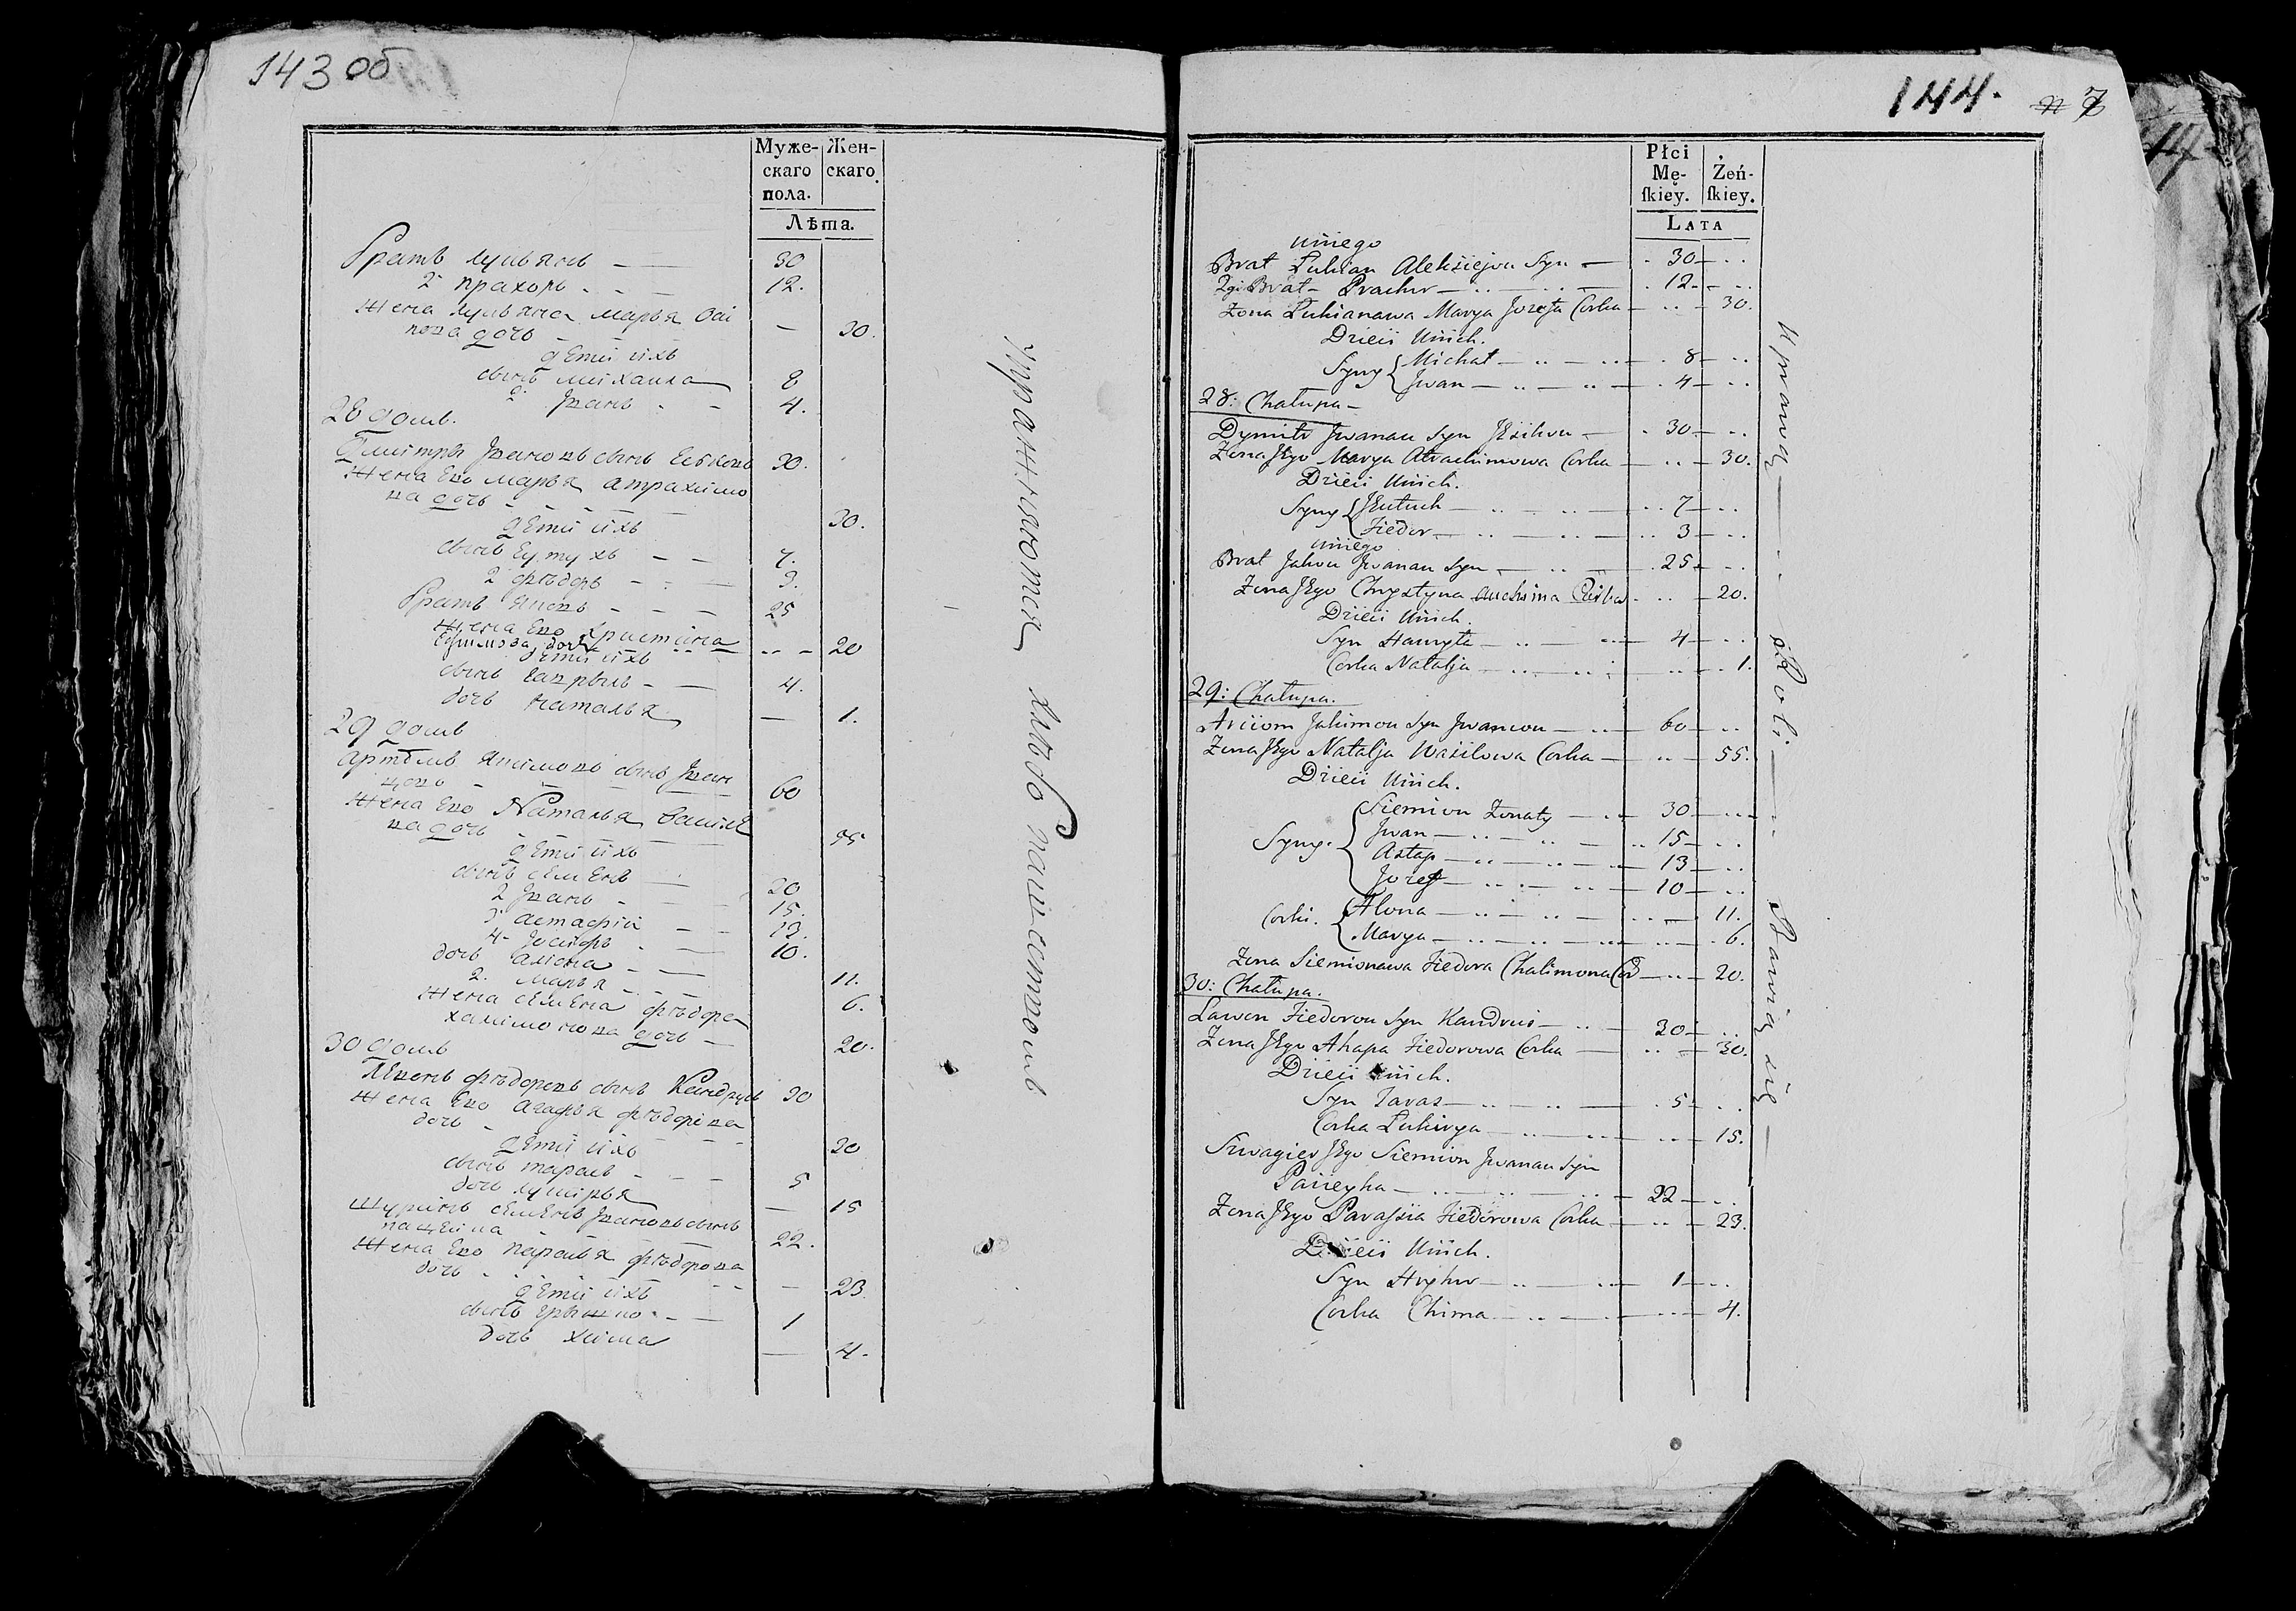 143 об
Муже-
скаго
пола.
Жен-
скаго.
Лѣта.
братъ лукъянъ 30
2 прахоръ 12.
жена лукъяна марья оси
пова дочь 30.
дети ихъ
сынъ михаила 8
2 Іванъ 4.
28 домъ.
Дмитръ Івановъ сынъ 30.
жена Его марья атрахимо
ва дочь 30.
дети ихъ
сынъ Еутухъ 7.
2 фѣдоръ 3.
братъ яковъ 25
жена Его христина
Ефимова дочь 20
дети ихъ
сынъ гаврылъ 4.
дочь наталья 1.
29 домъ
артемъ якимовъ сынъ Іван
цовъ 60
жена Его Наталья василе
ва дочь 55
дети ихъ
сынъ семенъ 30
2 Іванъ 15.
3 астафій 13.
4 Іосифъ 10.
дочь алена 11.
2. марья 6.
жена семена фѣдора
халимонова дочь 20.
30 домъ
лявонъ фѣдоровъ сынъ Кандрусъ 30
жена Его агафья фѣдорова
дочь 30
дети ихъ
сынъ тарасъ 5
дочь лукирья 15
шуринъ семенъ Івановъ сынъ
пацейка 22.
жена Его парасья фѣдорова
дочь 23
дети ихъ
сынъ грышко 1
дочь хима 4.
упражняются хлѣбопашествомъ
144. 7
Płci
Mę-
ſkiey.
Żeń-
ſkiey.
LATA
uniego
Brat Łukian Alekśiejou Syn 30
2gi Brat Prachor 12
Żona Łukianawa Marya Jozefa Corka 30.
Dzieci Unich.
Syny { Michał 8
Jwan 4
28: Chałupa
Dymitr Jwanau Syn Jeśikou 30
Żona Jego Marya Atrachimowa Corka 30.
Dzieci Unich.
Syny { Jeutuch 7
Fiedor 3
uniego
Brat Jakou Jwanau Syn 25
Żona Jego Chrystyna Auchima Corka 20.
Dzieci Unich.
Syn Hauryła 4
Corka Natalja 1.
29: Chałupa.
Arciom Jakimou Syn Jwancou 60
Żona Jego Natalja Waśilowa Corka 55.
Dzieci Unich.
Syny. { Siemion Żonaty 30
Jwan 15
Astap 13
Jozef 10
Corki. { Alona 11.
Marya 6.
Żona Siemionawa Fiedora Chalimona Cor 20.
30: Chałupa.
Lawon Fiedorou Syn Kandrus 30
Żona Jego Ahapa Fiedorowa Corka 30.
Dzieci Unich.
Syn Taras 5
Corka Łukirya 15.
Szwagier Jego Siemion Jwanau Syn
Pacieyka 22
Żona Jego Parasia Fiedorowa Corka 23.
Dzieci Unich.
Syn Hryhor 1
Corka Chima 4.
Uprawą Roli Bawią się